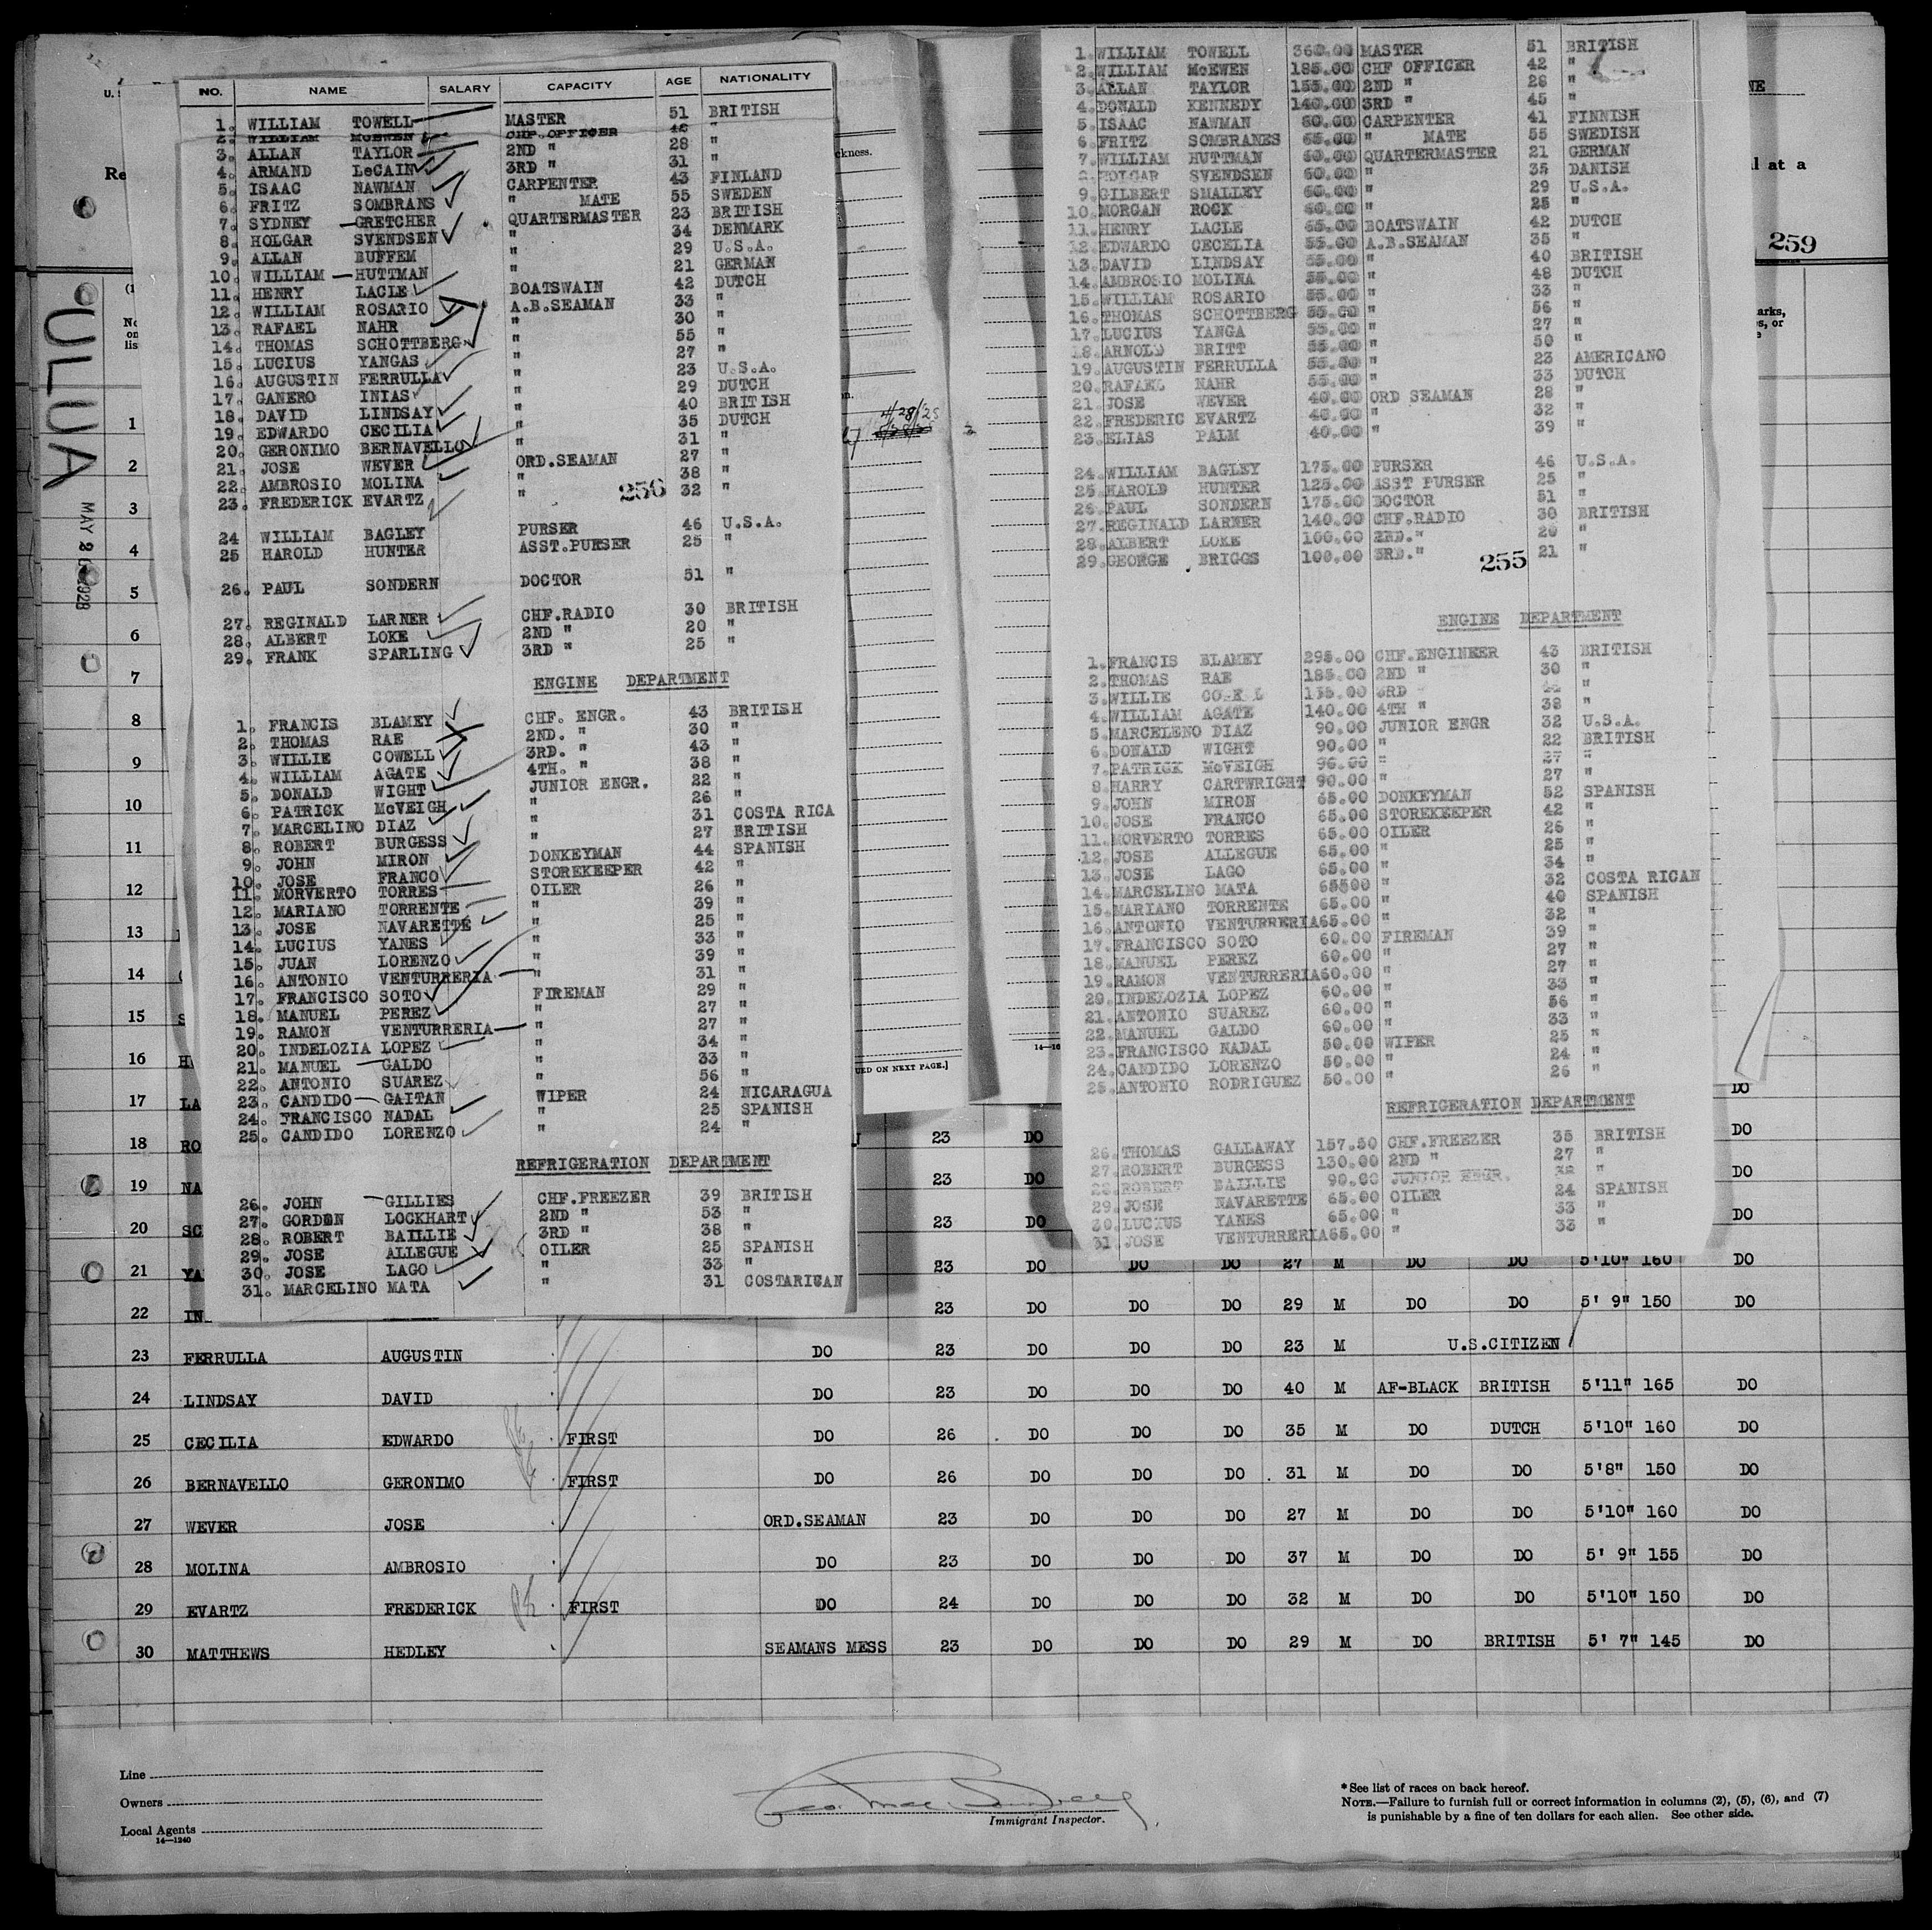 NO. NAME SALARY CAPACITY AGE NATIONALITY
1. WILLIAM TOWELL MASTER 51 BRITISH
2. WILLIAM McEWEN CHF.OFFICER 42 "
3. ALLAN TAYLOR 2ND " 28 "
4. ARMAND LeCAIN 3RD " 31 "
5. ISAAC NAWMAN CARPENTER 43 FINLAND
6. FRITZ SOMBRANS " MATE 55 SWEDEN
7. SYDNEY GRETCHER QUARTERMASTER 23 BRITISH
8. HOLGAR SVENDSEN " 34 DENMARK
9. ALLAN BUFFEM " 29 U.S.A.
10. WILLIAM HUTTMAN " 21 GERMAN
11. HENRY LACLE BOATSWAIN 42 DUTCH
12. WILLIAM ROSARIO A.B.SEAMAN 33 "
13. RAFAEL NAHR " 30 "
14. THOMAS SCHOTTBERG " 55 "
15. LUCIUS YANGAS " 27 "
16. AUGUSTIN FERRULLA " 23 U.S.A.
17. GANERO INIAS " 29 DUTCH
18. DAVID LINDSAY " 40 BRITISH
19. EDWARDO CECILIA " 35 DUTCH
20. GERONIMO BERNAVELLO " 31 "
21. JOSE WEVER ORD.SEAMAN 27 "
22. AMBROSIO MOLINA " 38 "
23. FREDERICK EVARTZ " 32 "
256
24 WILLIAM BAGLEY PURSER 46 U.S.A.
25 HAROLD HUNTER ASST.PURSER 25 "
26. PAUL SONDERN DOCTOR 51 "
27. REGINALD LARNER CHF.RADIO 30 BRITISH
28. ALBERT LOKE 2ND " 20 "
29. FRANK SPARLING 3RD " 25 "
ENGINE DEPARTMENT
1. FRANCIS BLAMEY CHF. ENGR. 43 BRITISH
2. THOMAS RAE 2ND. " 30 "
3. WILLIE COWELL 3RD. " 43 "
4. WILLIAM AGATE 4TH. " 38 "
5. DONALD WIGHT JUNIOR ENGR. 22 "
6. PATRICK McVEIGH " 26 "
7. MARCELINO DIAZ " 31 COSTA RICA
8. ROBERT BURGESS " 27 BRITISH
9. JOHN MIRON DONKEYMAN 44 SPANISH
10. JOSE FRANCO STOREKEEPER 42 "
11. MORVERTO TORRES OILER 26 "
12. MARIANO TORRENTE " 39 "
13. JOSE NAVARETTE " 25 "
14. LUCIUS YANES " 33 "
15. JUAN LORENZO " 39 "
16. ANTONIO VENTURRERIA " 31 "
17. FRANCISCO SOTO FIREMAN 29 "
18. MANUEL PEREZ " 27 "
19. RAMON VENTURRERIA " 27 "
20. INDELOZIA LOPEZ " 34 "
21. MANUEL GALDO " 33 "
22. ANTONIO SUAREZ " 56 "
23. CANDIDO GAITAN WIPER 24 NICARAGUA
24. FRANCISCO NADAL " 25 SPANISH
25. CANDIDO LORENZO " 24 "
REFRIGERATION DEPARTMENT
26. JOHN GILLIES CHF.FREEZER 39 BRITISH
27. GORDON LOCKHART 2ND " 53 "
28. ROBERT BAILLIE 3RD " 38 "
29. JOSE ALLEGUE OILER 25 SPANISH
30. JOSE LAGO " 33 "
31. MARCELINO MATA " 31 COSTARICAN
1. WILLIAM TOWELL 360.00 MASTER 51 BRITISH
2. WILLIAM McEWEN 185.00 CHF OFFICER 42 "
3. ALLAN TAYLOR 155.00 2ND " 28 "
4. DONALD KENNEDY 140.00 3RD " 45 "
5. ISAAC NAWMAN 80.00 CARPENTER 41 FINNISH
6. FRITZ SOMBRANES 65.00 " MATE 55 SWEDISH
7. WILLIAM HUTTMAN 60.00 QUARTERMASTER 21 GERMAN
8. HOLGAR SVENDSEN 60.00 " 35 DANISH
9. GILBERT SMALLEY 60.00 " 29 U.S.A.
10. MORGAN ROCK 60.00 " 25 "
11. HENRY LACLE 65.00 BOATSWAIN 42 DUTCH
12. EDWARDO CECELIA 55.00 A.B.SEAMAN 35 "
13. DAVID LINDSAY 55.00 " 40 BRITISH
14. AMBROSIO MOLINA 55.00 " 48 DUTCH
15. WILLIAM ROSARIO 55.00 " 33 "
16. THOMAS SCHOTTBERG 55.00 " 56 "
17. LUCIUS YANGA 55.00 " 27 "
18. ARNOLD BRITT 55.00 " 50 "
19. AUGUSTIN FERRULLA 55.00 " 23 AMERICANO
20. RAFAEL NAHR 55.00 " 33 DUTCH
21. JOSE WEVER 40.00 ORD SEAMAN 28 "
22. FREDERIC EVARTZ 40.00 " 32 "
23. ELIAS PALM 40.00 " 39 "
24. WILLIAM BAGLEY 175.00 PURSER 46 U.S.A.
25. HAROLD HUNTER 125.00 ASST PURSER 25 "
26. PAUL SONDERN 175.00 DOCTOR 51 "
27. REGINALD LARNER 140.00 CHF.RADIO 30 BRITISH
28. ALBERT LOKE 100.00 2ND." 20 "
29. GEORGE BRIGGS 100.00 3RD." 21 "
255
ENGINE DEPARTMENT
1. FRANCIS BLAMEY 295.00 CHF.ENGINEER 43 BRITISH
2. THOMAS RAE 185.00 2ND " 30 "
3. WILLIE 155.00 3RD "
4. WILLIAM AGATE 140.00 4TH " 38 "
5. MARCELENO DIAZ 90.00 JUNIOR ENGR 32 U.S.A.
6. DONALD WIGHT 90.00 " 22 BRITISH
7. PATRICK McVEIGH 90.00 " 27 "
8. HARRY CARTWRIGHT 90.00 " 27 "
9. JOHN MIRON 65.00 DONKEYMAN 52 SPANISH
10. JOSE FRANCO 65.00 STOREKEEPER 42 "
11. MORVERTO TORRES 65.00 OILER 26 "
12. JOSE ALLEGUE 65.00 " 25 "
13. JOSE LAGO 65.00 " 34 "
14. MARCELINO MATA 65500 " 32 COSTA RICAN
15. MARIANO TORRENTE 65.00 " 40 SPANISH
16. ANTONIO VENTURRERIA 65.00 " 32 "
17. FRANCISCO SOTO 60.00 FIREMAN 39 "
18. MANUEL PEREZ 60.00 " 27 "
19. RAMON VENTURRERIA 60.00 " 27 "
20. INDELOZIA LOPEZ 60.00 " 33 "
21. ANTONIO SUAREZ 60.00 " 56 "
22. MANUEL GALDO 60.00 " 33 "
23. FRANCISCO NADAL 50.00 WIPER 25 "
24. CANDIDO LORENZO 50.00 " 24 "
25. ANTONIO RODRIGUEZ 50.00 " 26 "
REFRIGERATION DEPARTMENT
26. THOMAS GALLAWAY 157.50 CHF.FREEZER 35 BRITISH
27. ROBERT BURGESS 130.00 2ND " 27 "
28. ROBERT BAILLIE 90.00 JUNIOR ENGR. 38 "
29. JOSE NAVARETTE 65.00 OILER 24 SPANISH
30. LUCIUS YANES 65.00 " 33 "
31. JOSE VENTURRERIA 65.00 " 33 "
U.S.
Re
ckness.
l at a
NE
259
ULUA
MAY 2 1928
No.
on
lis
arks,
s, or
4/28/25
14—16
UED ON NEXT PAGE.]
1
2
3
4
5
6
7
8
9
10
11
12
13
14
15 S
16 H
17 LA DO
18 RO 23 DO DO
19 NA 23 DO DO
20 SC 23 DO DO
21 YA 23 DO DO DO 27 M DO DO 5'10" 160 DO
22 IN 23 DO DO DO 29 M DO DO 5' 9" 150 DO
23 FERRULLA AUGUSTIN DO 23 DO DO DO 23 M U.S.CITIZEN
24 LINDSAY DAVID DO 23 DO DO DO 40 M AF-BLACK BRITISH 5'11" 165 DO
25 CECILIA EDWARDO FIRST DO 26 DO DO DO 35 M DO DUTCH 5'10" 160 DO
26 BERNAVELLO GERONIMO FIRST DO 26 DO DO DO 31 M DO DO 5'8" 150 DO
27 WEVER JOSE ORD.SEAMAN 23 DO DO DO 27 M DO DO 5'10" 160 DO
28 MOLINA AMBROSIO DO 23 DO DO DO 37 M DO DO 5' 9" 155 DO
29 EVARTZ FREDERICK FIRST DO 24 DO DO DO 32 M DO DO 5'10" 150 DO
30 MATTHEWS HEDLEY SEAMANS MESS 23 DO DO DO 29 M DO BRITISH 5' 7" 145 DO
Line
Owners
Local Agents
14—1240
Immigrant Inspector.
* See list of races on back hereof.
NOTE.—Failure to furnish full or correct information in columns (2), (5), (6), and (7)
is punishable by a fine of ten dollars for each alien. See other side.